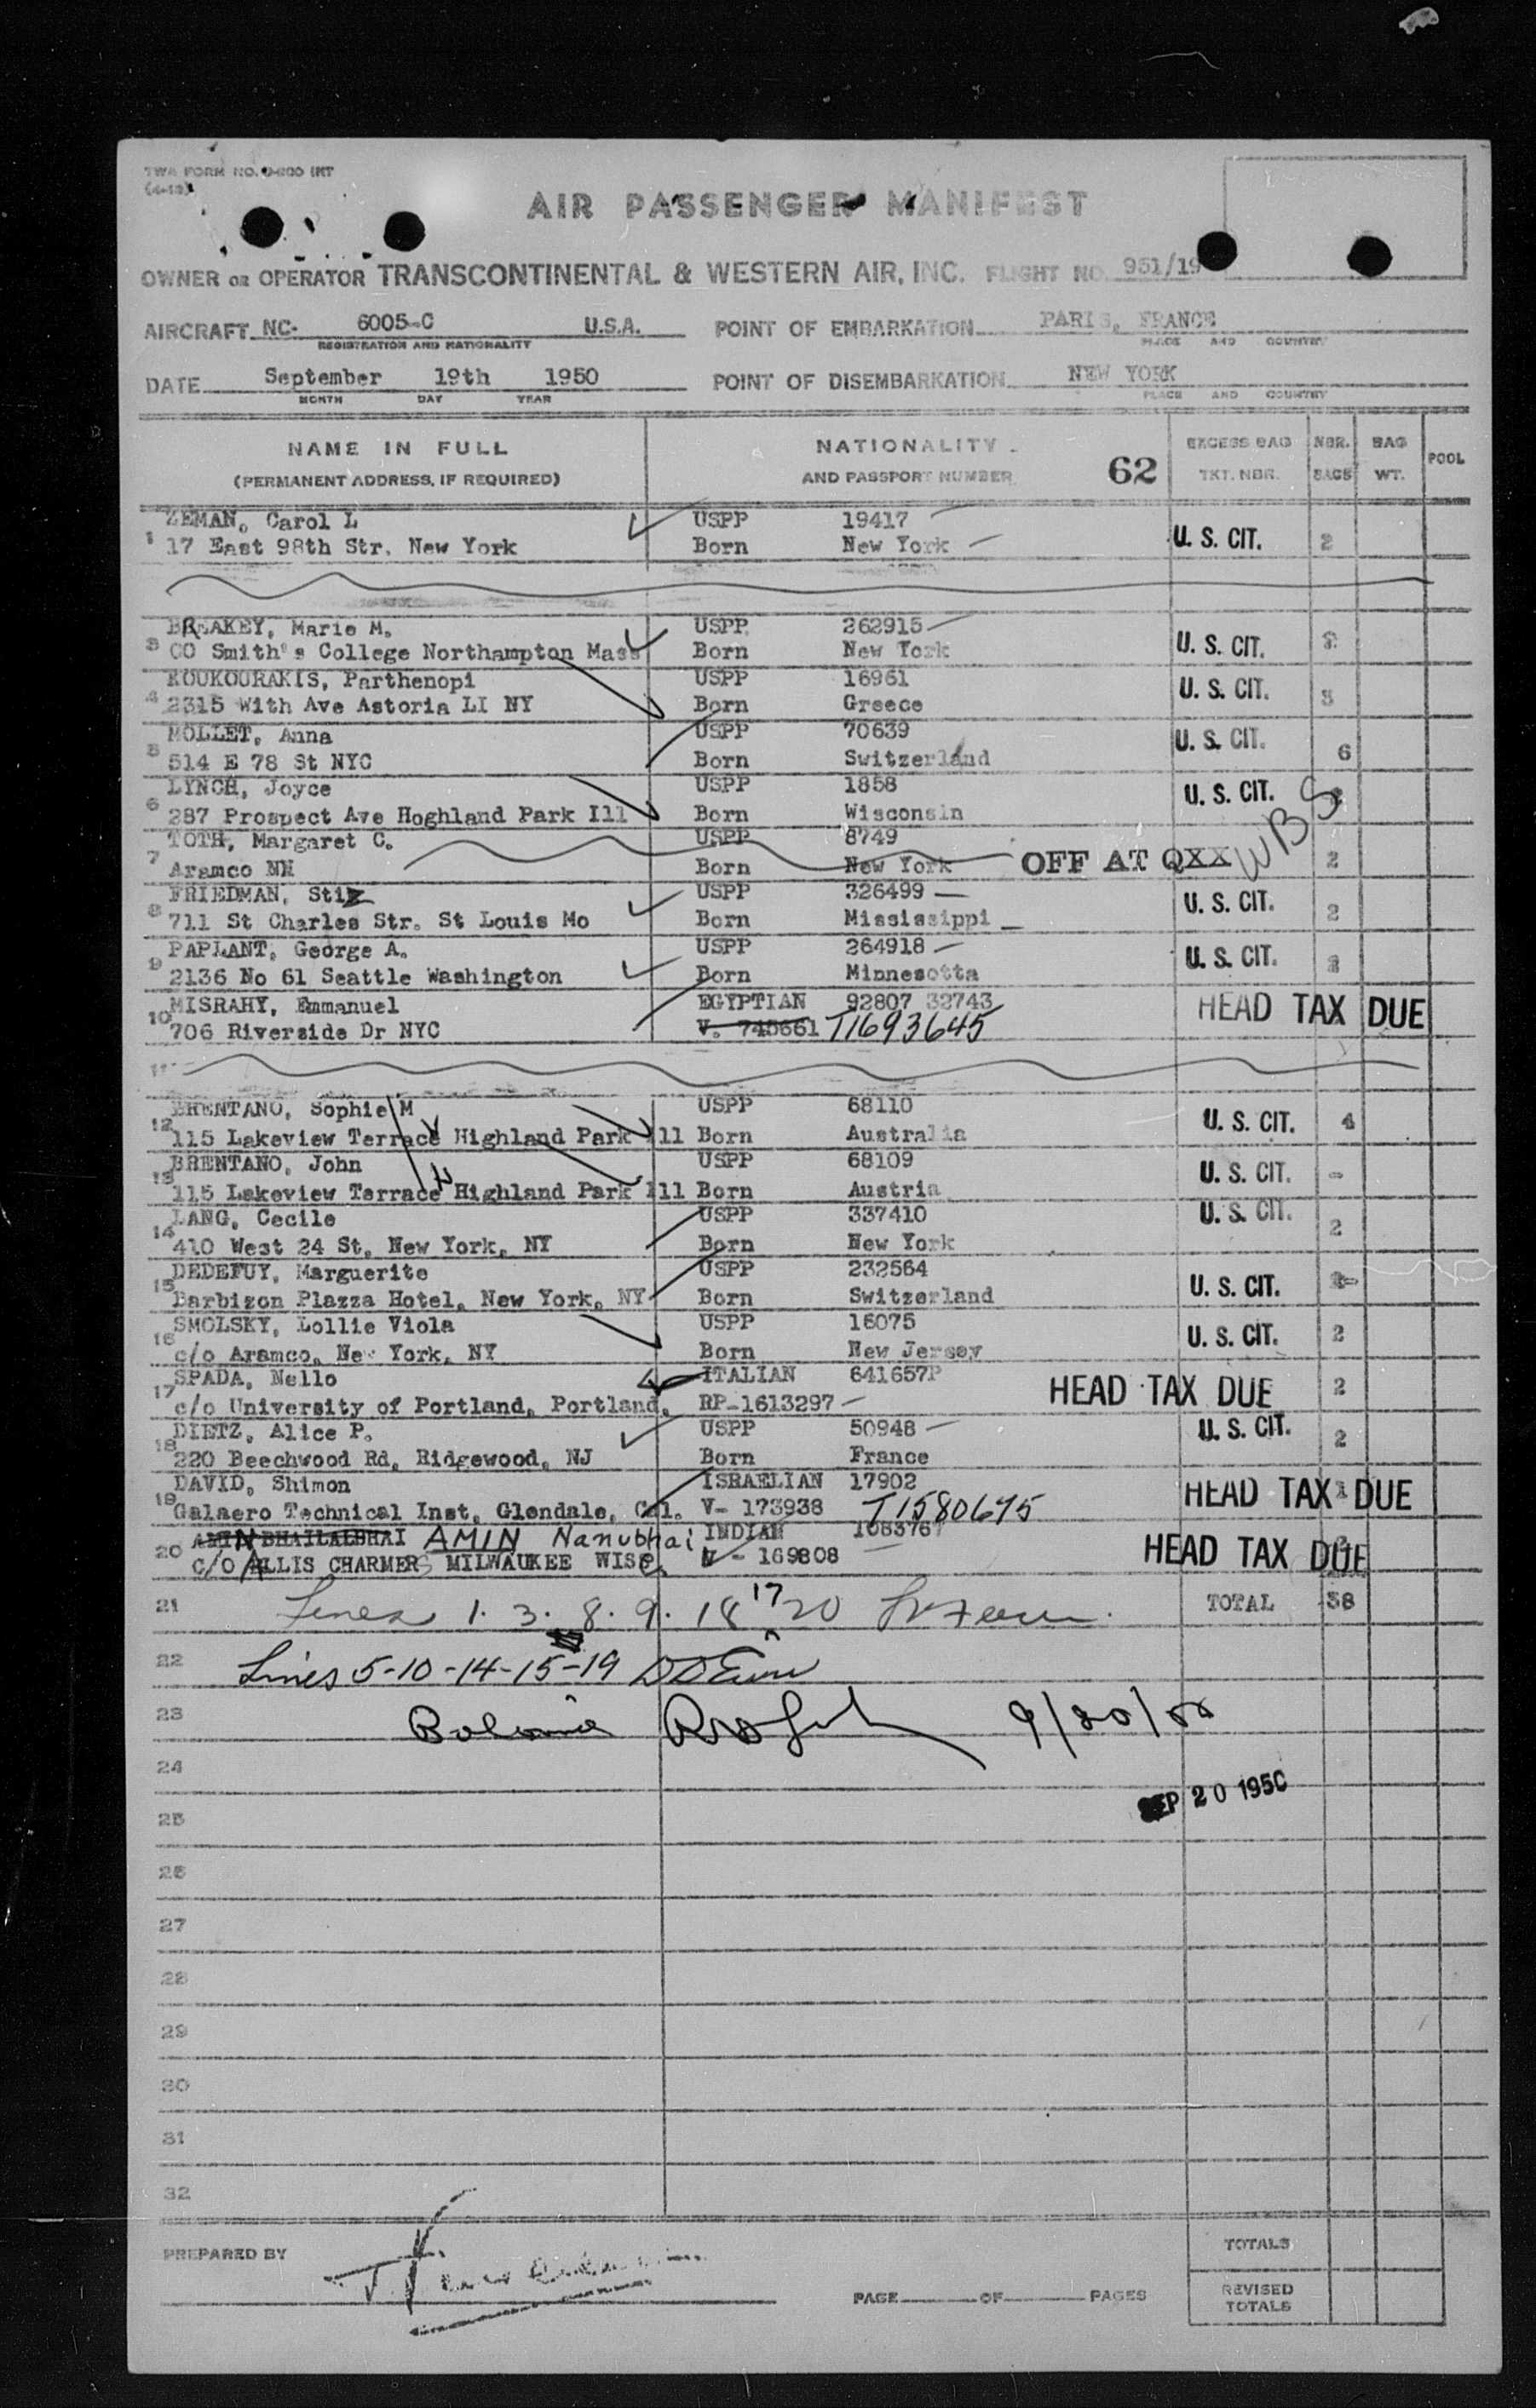 TWA FORM NO.
AIR PASSENGER MANIFEST
OWNER OR OPERATOR TRANSCONTINENTAL & WESTERN AIR, INC. FLIGHT NO. 951/19
AIRCRAFT NC- 6005-C U.S.A. POINT OF EMBARKATION PARIS, FRANCE
REGISTRATION AND NATIONALITY PLACE AND COUNTRY
DATE September 19th 1950 POINT OF DISEMBARKATION NEW YORK
MONTH DAY YEAR PLACE AND COUNTRY
NAME IN FULL NATIONALITY EXCESS BAG NBR. BAG POOL
(PERMANENT ADDRESS, IF REQUIRED) AND PASSPORT NUMBER 62 TKT. NBR. BAGS WT.
ZEMAN, Carol L USPP 19417
1 17 East 98th Str. New York Born New York U. S. CIT. 2
BREAKEY, Marie M. USPP 262915
3 CO Smith's College Northampton Mass Born New York U. S. CIT. 2
KOUKOURAKIS, Parthenopi USPP 16961
4 2315 With Ave Astoria LI NY Born Greece U. S. CIT. 3
MOLLET, Anna USPP 70639
5 514 E 78 St NYC Born Switzerland U. S. CIT. 6
LYNCH, Joyce USPP 1858
6 287 Prospect Ave Hoghland Park Ill Born Wisconsin U. S. CIT.
TOTH, Margaret C. USPP 8749
7 Aramco NH Born New York OFF AT QXX WBS 2
FRIEDMAN, USPP 326499
8 711 St Charles Str. St Louis Mo Born Mississippi U. S. CIT. 2
PAPLANT, George A. USPP 264918
9 2136 No 61 Seattle Washington Born Minnesotta U. S. CIT. 2
MISRAHY, Emmanuel EGYPTIAN 92807 32743
10 706 Riverside Dr NYC V. 745661 T1693645 HEAD TAX DUE
11
BRENTANO, Sophie M USPP 68110
12 115 Lakeview Terrace Highland Park Ill Born Australia U. S. CIT. 4
BRENTANO, John USPP 68109
13 115 Lakeview Terrace Highland Park Ill Born Austria U. S. CIT. -
LANG, Cecile USPP 337410
14 410 West 24 St, New York, NY Born New York U. S. CIT. 2
DEDEFUY, Marguerite USPP 232564
15 Barbizon Plazza Hotel, New York, NY Born Switzerland U. S. CIT.
SMOLSKY, Lollie Viola USPP 16075
16 c/o Aramco, New York, NY Born New Jersey U. S. CIT. 2
SPADA, Nello ITALIAN 641657P
17 c/o University of Portland, Portland, RP-1613297 HEAD TAX DUE 2
DIETZ, Alice P. USPP 50948
18 220 Beechwood Rd, Ridgewood, NJ Born France U. S. CIT. 2
DAVID, Shimon ISRAELIAN 17902
19 Galaero Technical Inst, Glendale, Cal. V- 173938 T1580675 HEAD TAX DUE 1
AMIN BHAILALBHAI AMIN Nanubhai INDIAN 108376
20 C/O ALLIS CHARMERS MILWAUKEE WISC. V - 169808 HEAD TAX DUE
21 Lines 1. 3. 8. 9. 18 17 20 TOTAL 38
22 Lines 5-10-14-15-19
23 9/20/50
24
SEP 20 1950
25
26
27
28
29
30
31
32
PREPARED BY TOTALS
PAGE OF PAGES REVISED TOTALS